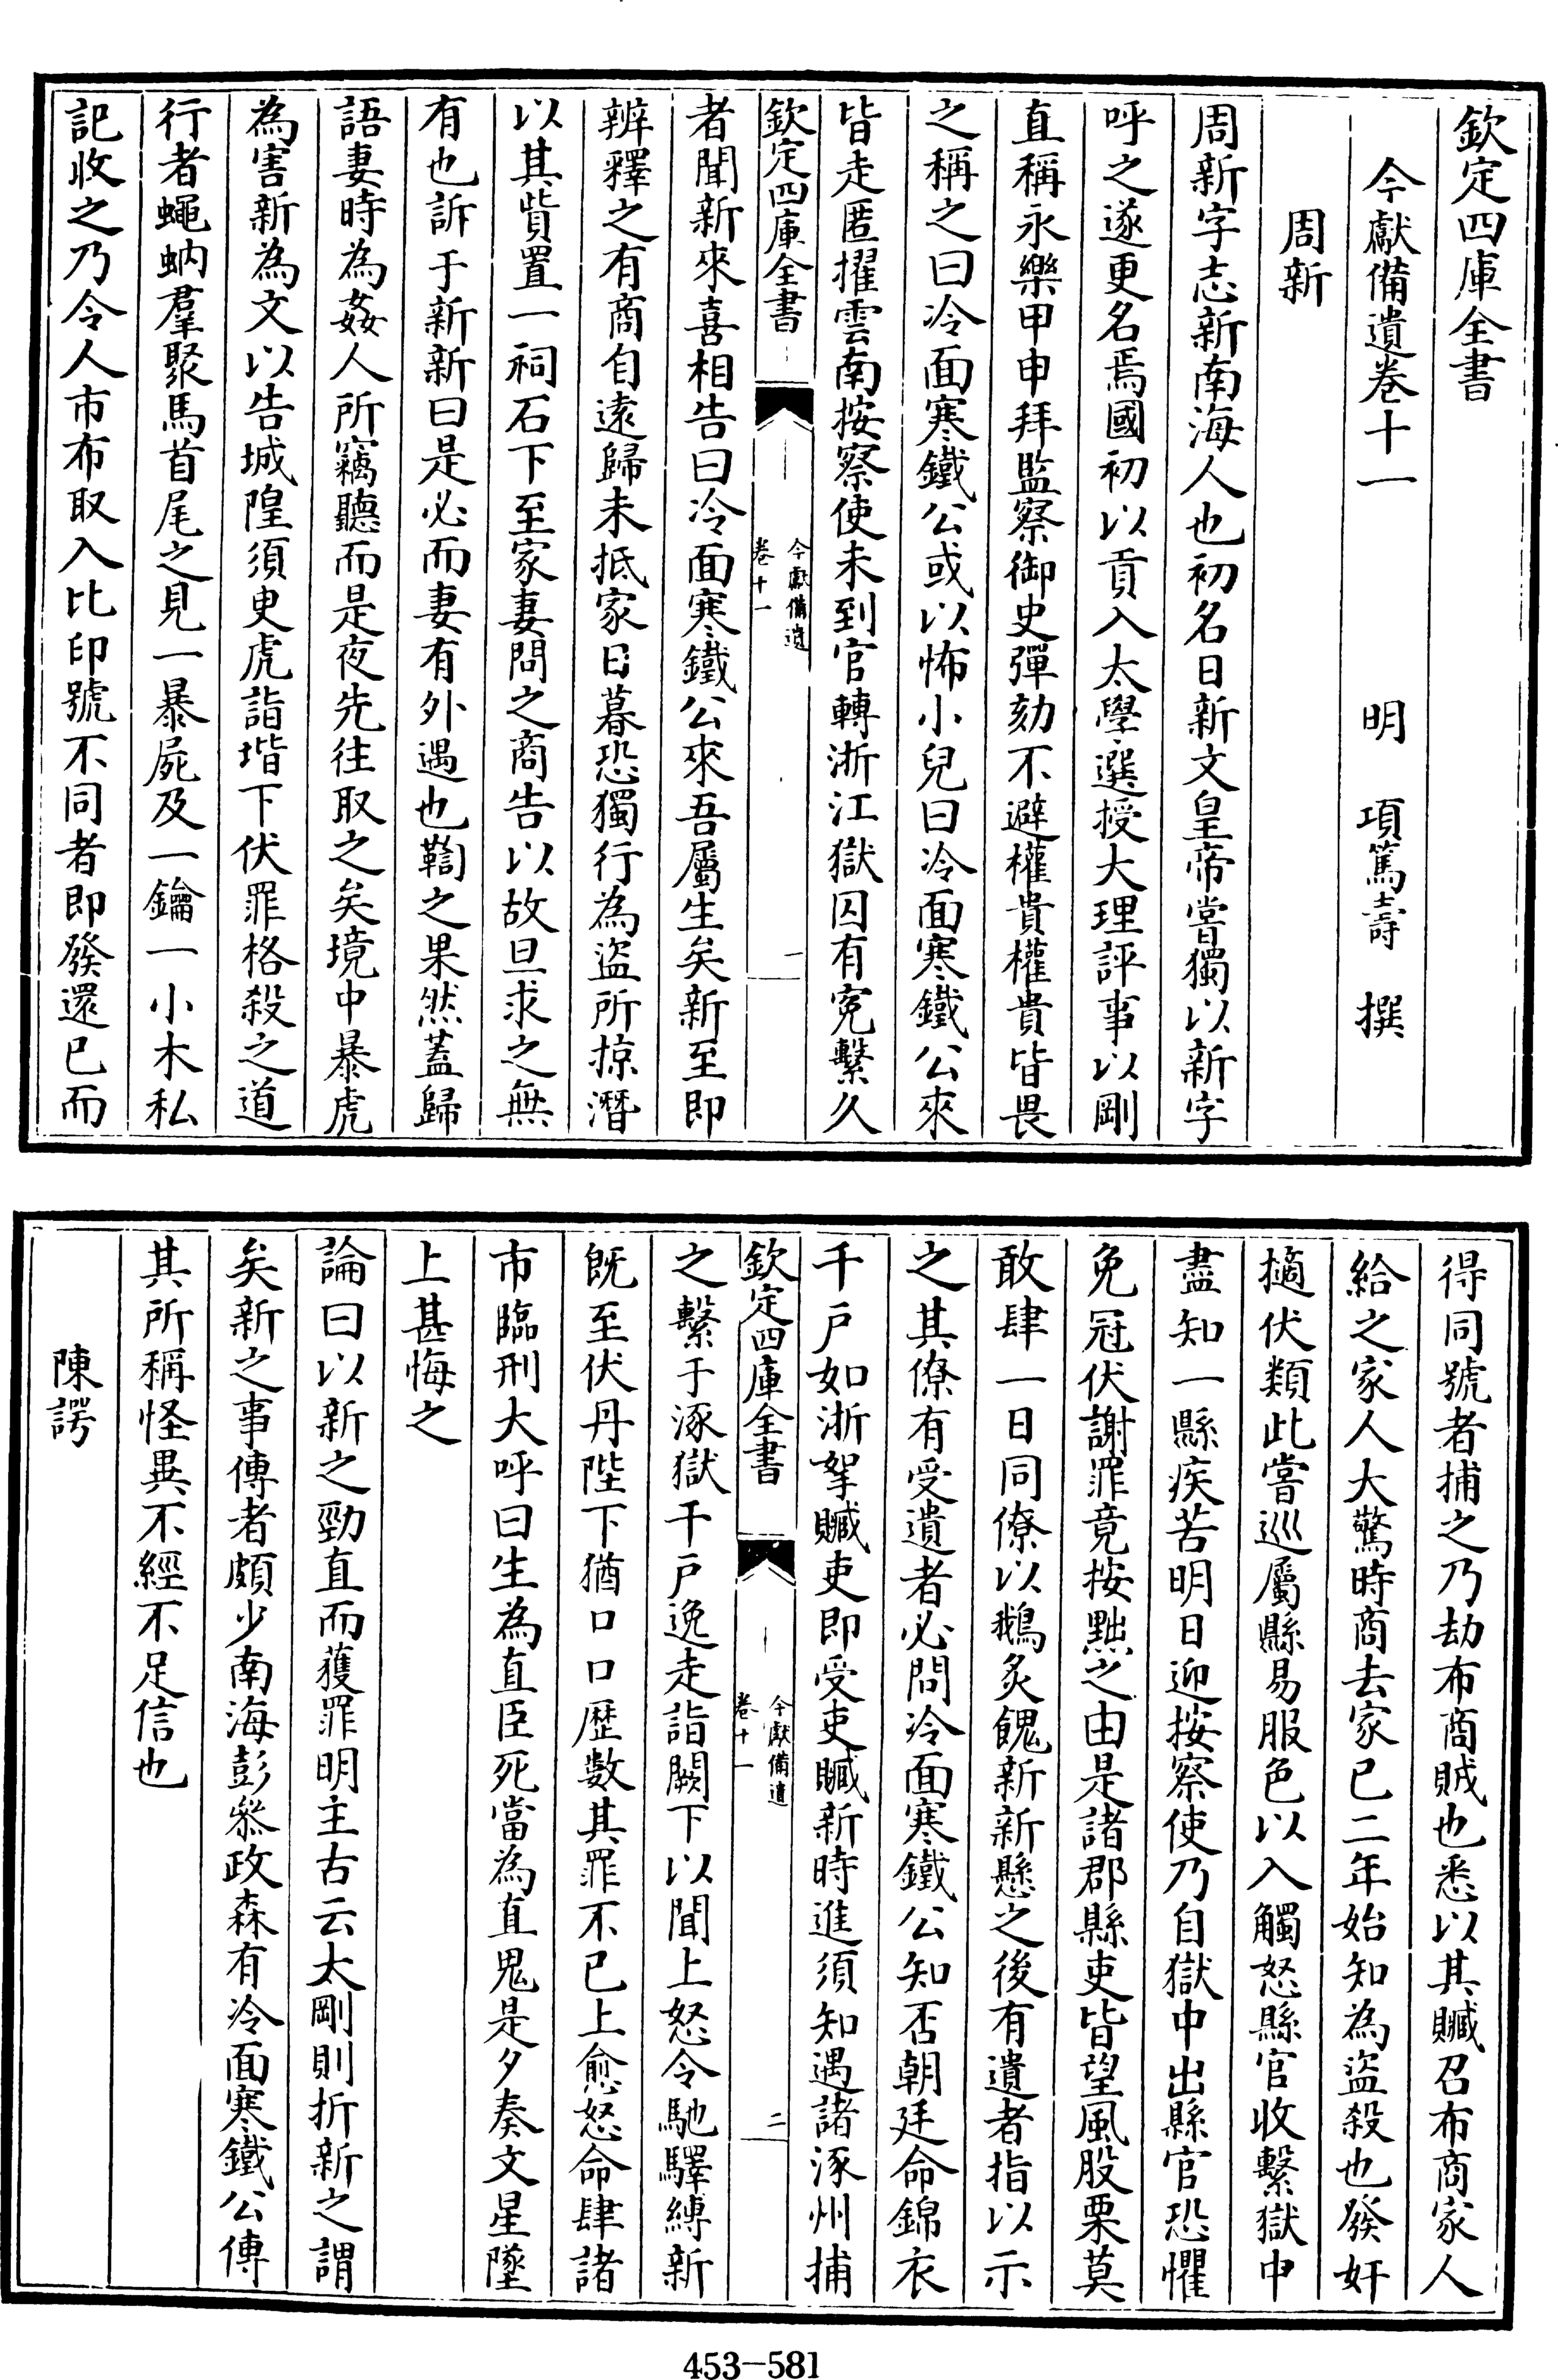 欽定四庫全書
今獻備遺卷十一 明 項篤壽 撰
周新
周新字志新南海人也初名日新文皇帝嘗獨以新字
呼之遂更名焉國初以貢入太學選授大理評事以剛
直稱永樂甲申拜監察御史彈劾不避權貴權貴皆畏
之稱之曰冷面寒鐵公或以怖小兒曰冷面寒鐵公來
皆走匿擢雲南按察使未到官轉浙江獄囚有寃繫久
欽定四庫全書
今獻備遺
卷十一
一
者聞新來喜相告曰冷面寒鐵公來吾屬生矣新至即
辨釋之有商自遠歸未抵家日暮恐獨行為盜所掠潛
以其貲置一祠石下至家妻問之商告以故旦求之無
有也訴于新新曰是必而妻有外遇也鞫之果然蓋歸
語妻時為姦人所竊聽而是夜先往取之矣境中暴虎
為害新為文以告城隍須臾虎詣堦下伏罪格殺之道
行者蠅蚋羣聚馬首尾之見一暴屍及一鑰一小木私
記收之乃令人市布取入比印號不同者即發還已而
得同號者捕之乃劫布商賊也悉以其贓召布商家人
給之家人大驚時商去家已二年始知為盜殺也發奸
擿伏類此嘗巡屬縣易服色以入觸怒縣官收繫獄中
盡知一縣疾苦明日迎按察使乃自獄中出縣官恐懼
免冠伏謝罪竟按黜之由是諸郡縣吏皆望風股栗莫
敢肆一日同僚以鵝炙餽新新懸之後有遺者指以示
之其僚有受遺者必問冷面寒鐵公知否朝廷命錦衣
千戶如浙挐贓吏即受吏贓新時進須知遇諸涿州捕
欽定四庫全書
今獻備遺
卷十一
二
之繫于涿獄千戶逸走詣闕下以聞上怒令馳驛縛新
既至伏丹陛下猶口口歷數其罪不已上愈怒命肆諸
市臨刑大呼曰生為直臣死當為直鬼是夕奏文星墜
上甚悔之
論曰以新之勁直而獲罪明主古云太剛則折新之謂
矣新之事傳者頗少南海彭叅政森有冷面寒鐵公傳
其所稱怪異不經不足信也
陳諤
453-581